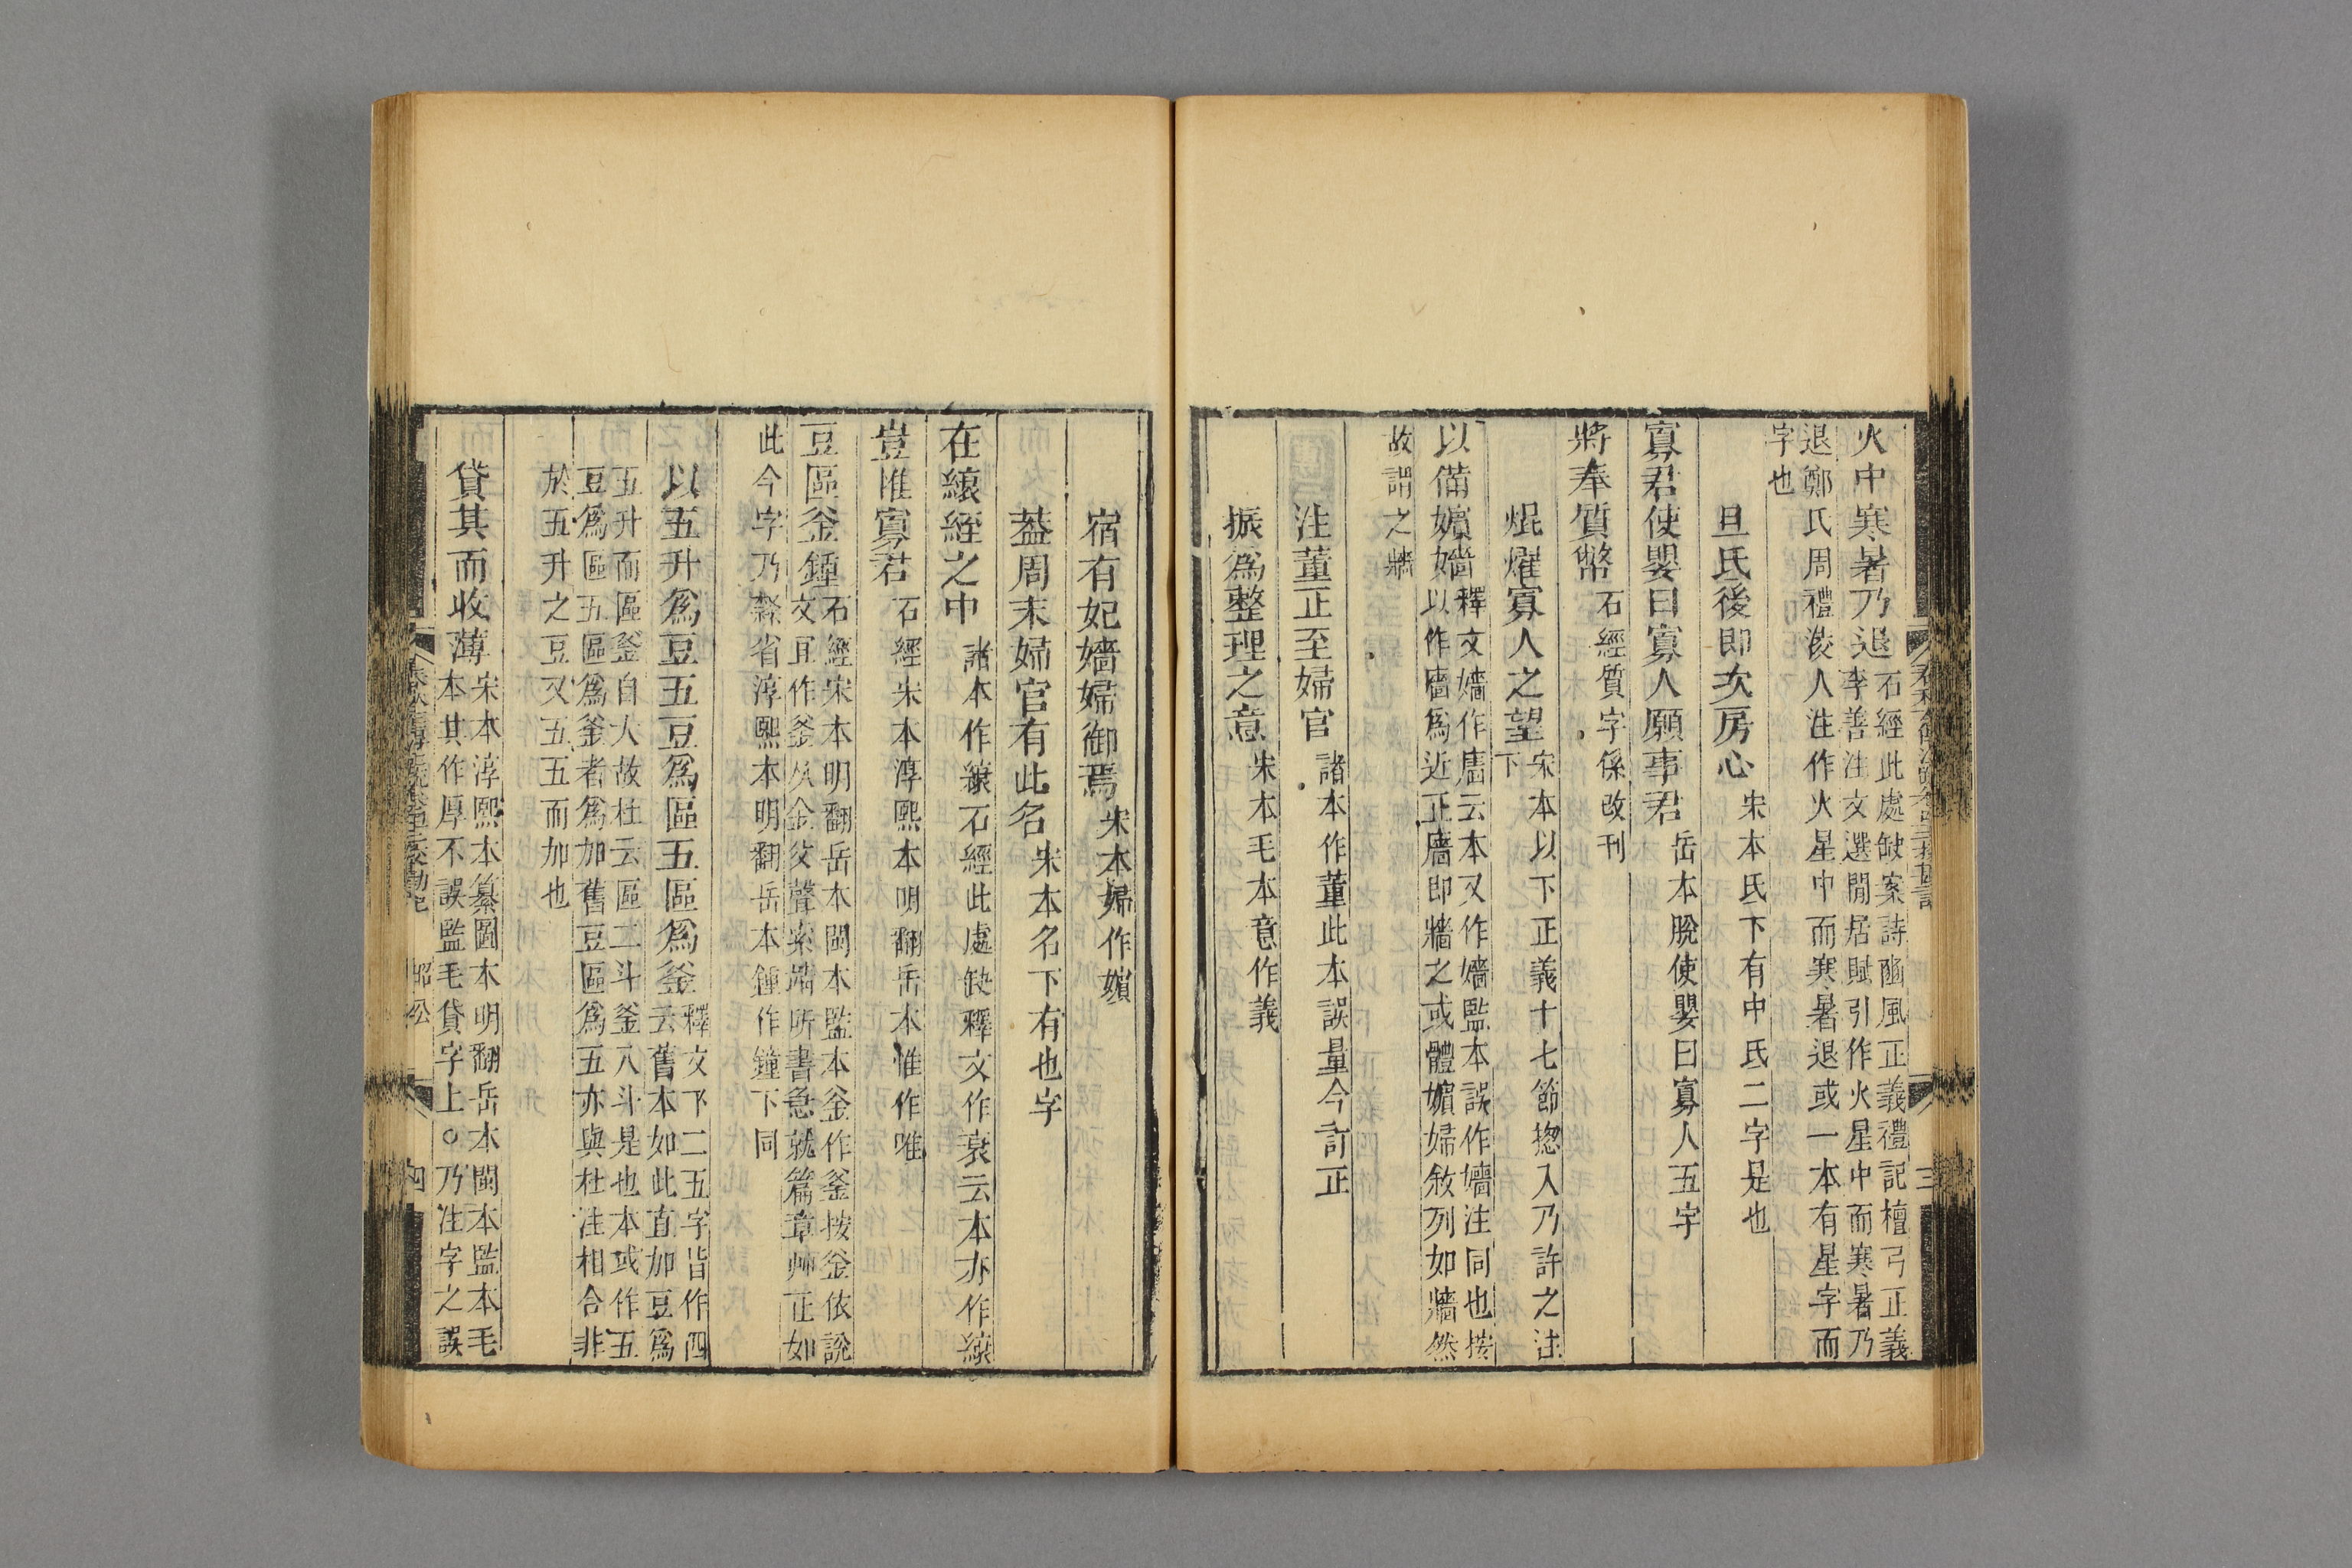 火中寒暑乃退石經此處缺案詩豳風正義禮記檀弓正義
李善注文選閒居賦引作火星中而寒暑乃
退鄭氏周禮淩人注作火星中而寒暑退或一本有星字而
字也
旦氐後即次房心宋本氐下有中氐二字是也
寡君使嬰曰寡人願事君岳本脫使嬰曰寡人五字
將奉質幣石經質字係改刊
焜燿寡人之望宋本以下正義十七節揔入乃許之注
下
以備嬪嬙釋文嬙作廧云本又作嬙監本誤作嬙注同也按
以作廧爲近正廧即牆之或體嬪婦敘列如牆然
故謂之牆
注董正至婦官諸本作董此本誤量今訂正
振爲整理之意宋本毛本意作義
三
宿有妃嬙婦御焉宋本婦作嬪
蓋周末婦官有此名宋本名下有也字
在縗絰之中諸本作縗石經此處缺釋文作衰云本亦作縗
豈惟寡君石經宋本淳熙本明翻岳本惟作唯
豆區釜鍾石經宋本明翻岳本閩本監本釜作釡按釡依說
文且作釜从金父聲索靖所書急就篇章艸正如
此今字乃㯡省淳熙本明翻岳本鍾作鐘下同
以五升爲豆五豆爲區五區爲釜釋文下二五字皆作四
云舊本如此直加豆爲
五升而區釜自大故杜云區二斗釜八斗是也本或作五
豆爲區五區爲釜者爲加舊豆區爲五亦與杜注相合非
於五升之豆又五五而加也
貸其而收薄宋本淳熙本纂圖本明翻岳本閩本監本毛
本其作厚不誤監毛貸字上○乃注字之誤
昭公
四